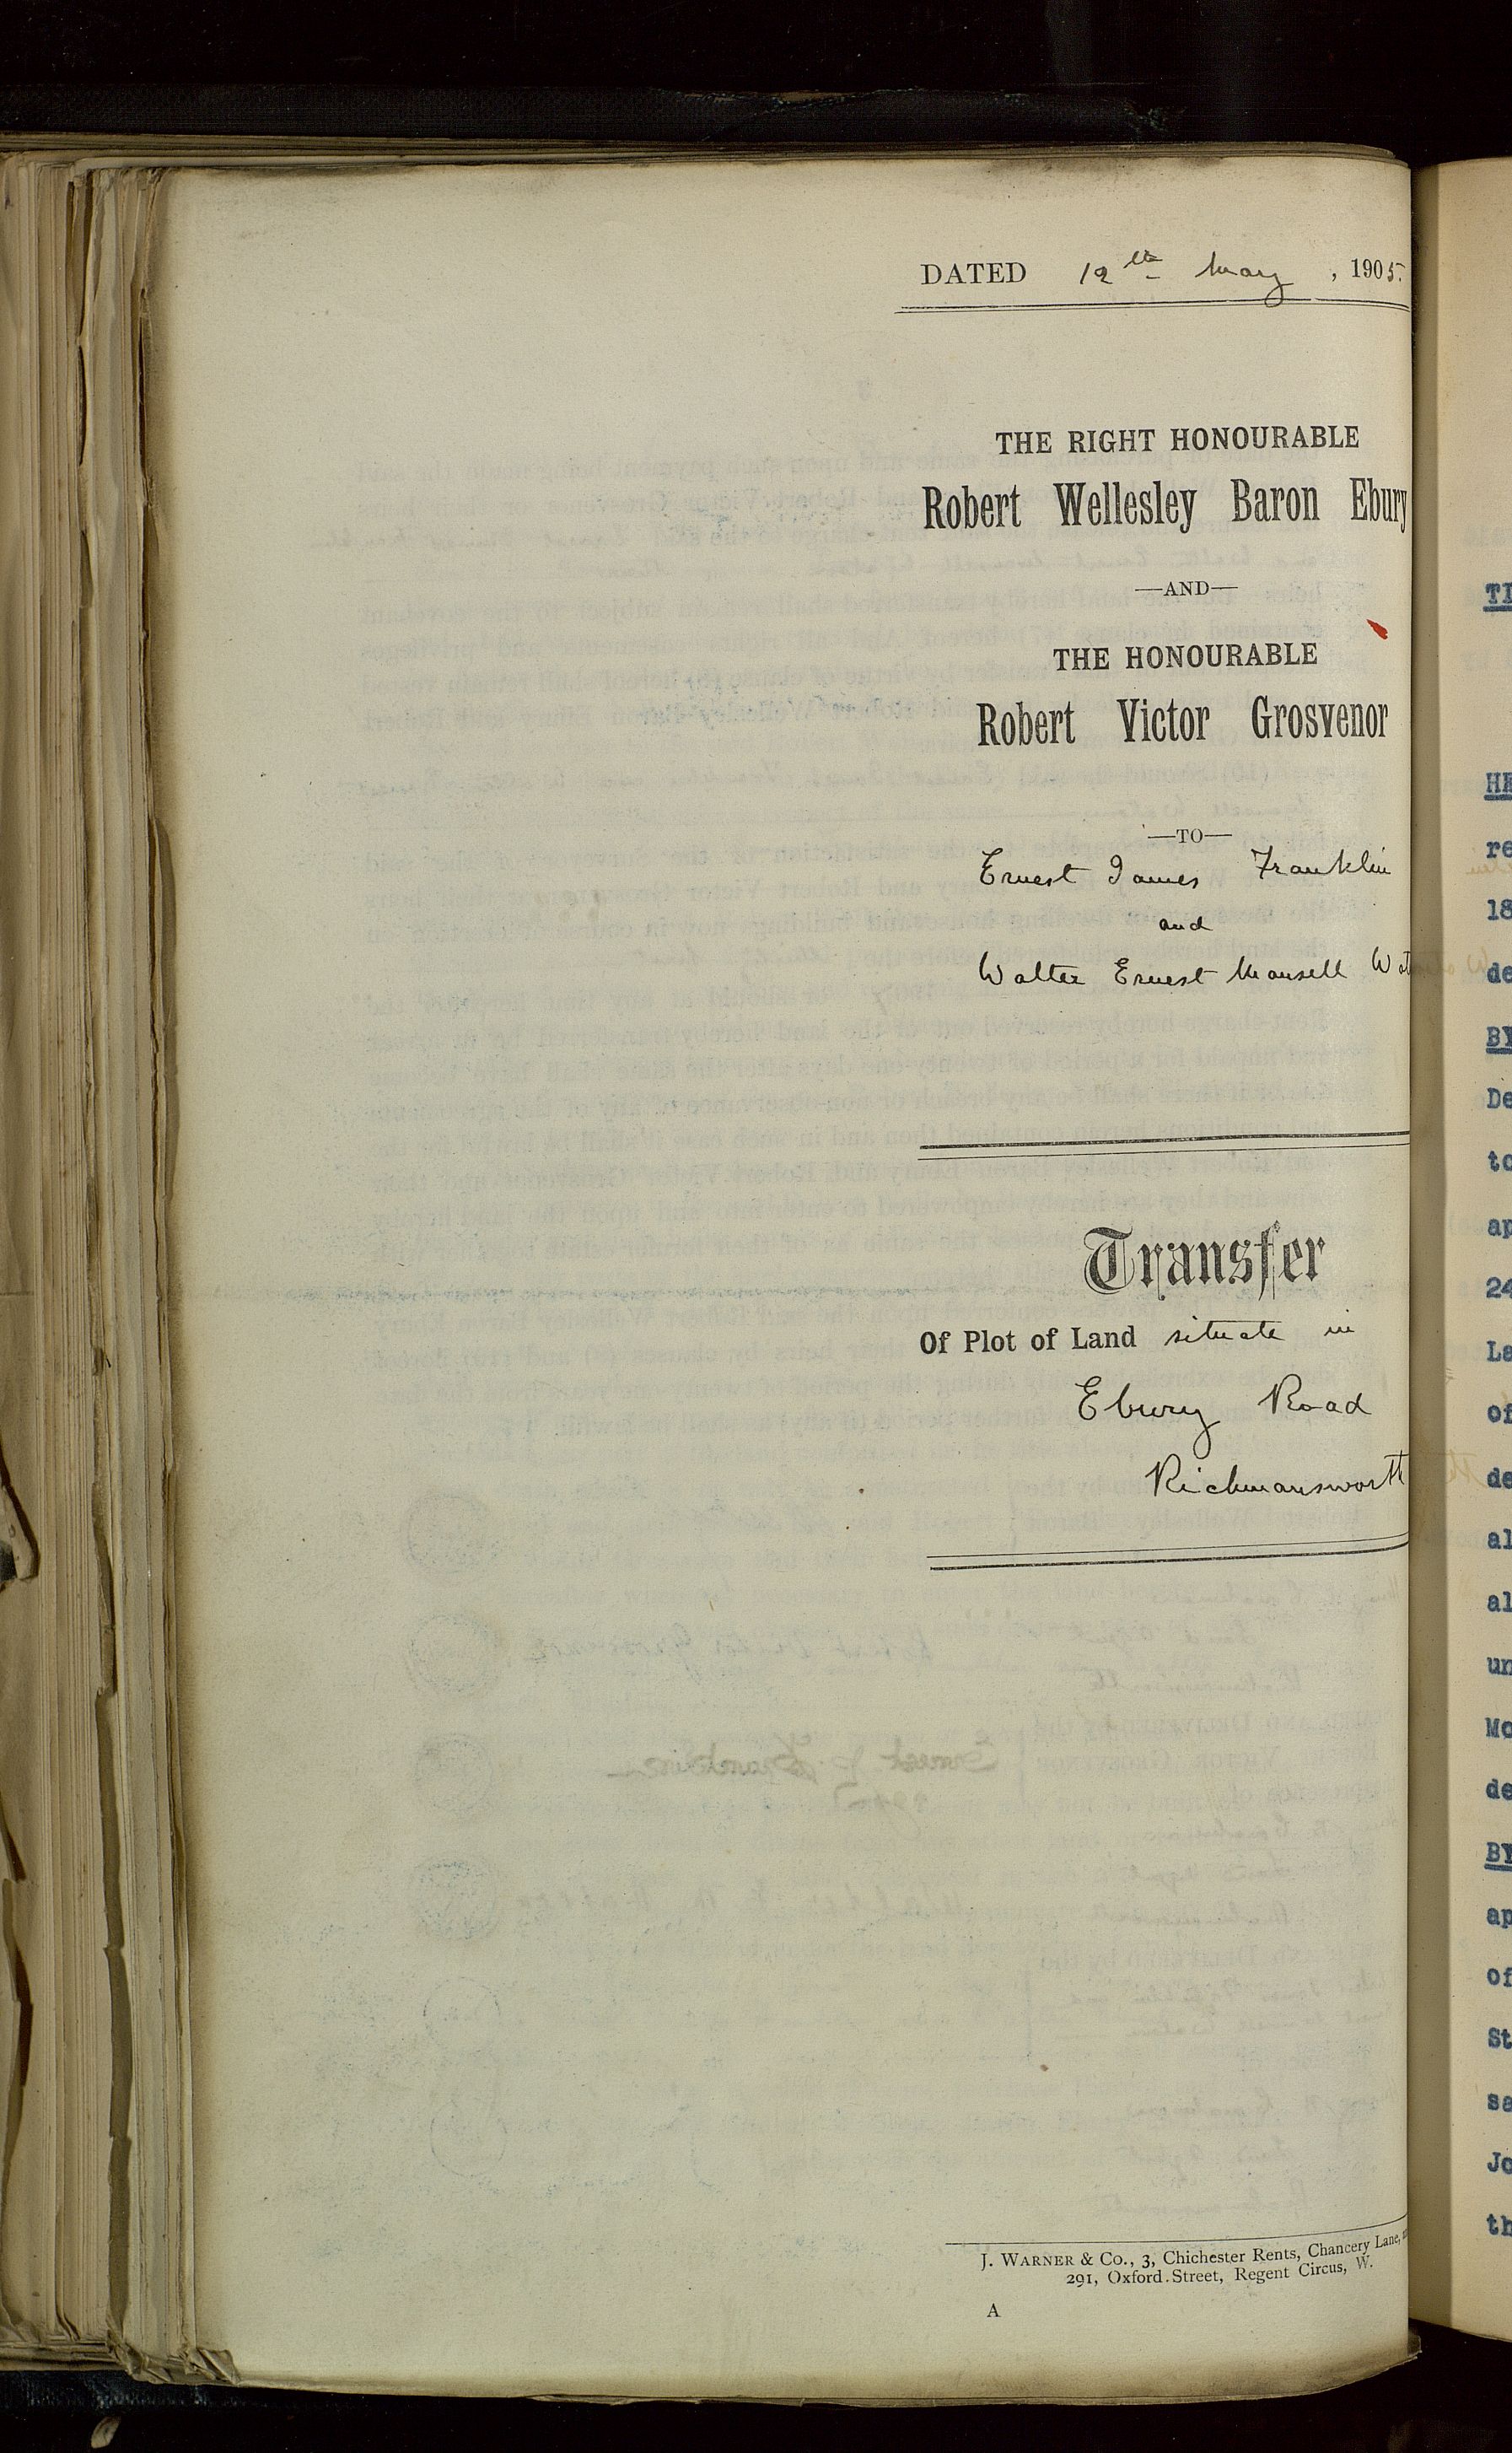 DATED 12th May, 1905.
THE RIGHT HONOURABLE
Robert Wellesley Baron Ebury
—AND—
THE HONOURABLE
Robert Victor Grosvenor
—TO—
Ernest James Franklin
and
Walter Ernest Mansell Wat
Transfer
Of Plot of Land situate in
Ebury Road
Rickmansworth
J. WARNER & CO., 3, Chichester Rents, Chancery Lane,
291, Oxford Street, Regent Circus, W.
A
TI
HE
re
18
de
BY
De
to
ap
24
La
of
de
al
al
un
Mo
de
BY
ap
of
St
sa
Jo
th